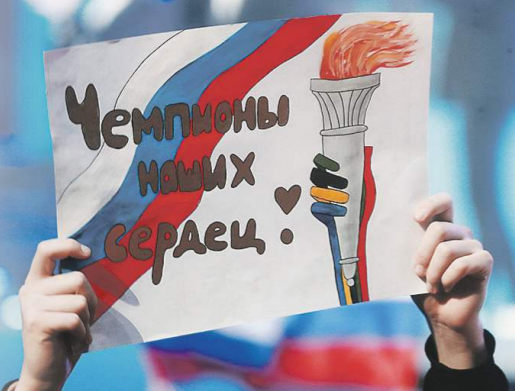 Чемпионы
наших
сердец!